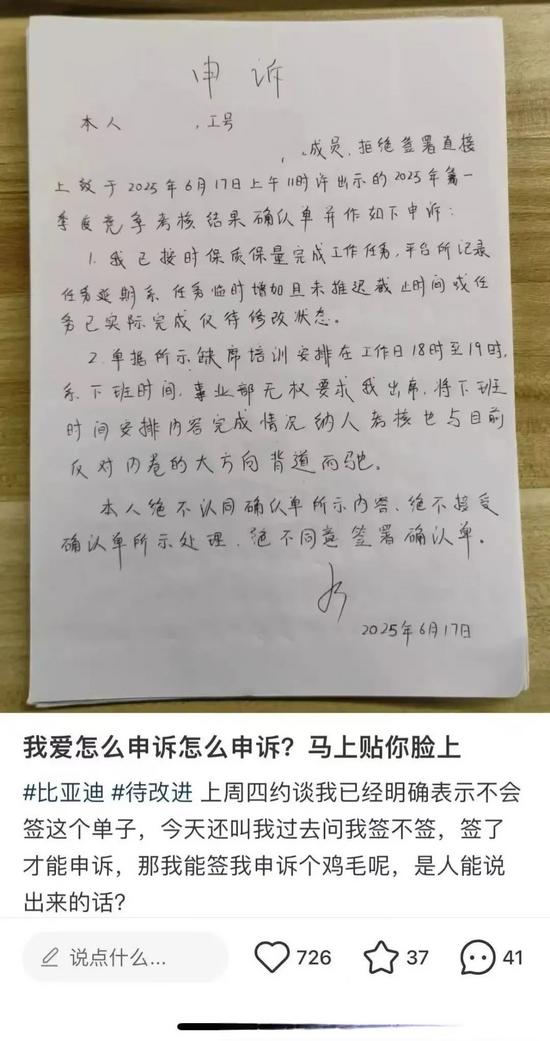 申 诉
本人 , 工号
, 成员, 拒绝签署直接
上级于2025年6月17日上午11时许出示的2025年第一
季度竞争考核结果确认单并作如下申诉:
1. 我已按时保质保量完成工作任务, 平台所记录
任务延期系任务临时增加且未推迟截止时间或任
务已实际完成仅待修改状态。
2. 单据所示缺席培训安排在工作日18时至19时,
系下班时间, 事业部无权要求我出席, 将下班
时间安排内容完成情况纳入考核也与目前
反对内卷的大方向背道而驰。
本人绝不认同确认单所示内容、绝不接受
确认单所示处理、绝不同意签署确认单。
2025年6月17日
我爱怎么申诉怎么申诉?马上贴你脸上
#比亚迪 #待改进 上周四约谈我已经明确表示不会
签这个单子,今天还叫我过去问我签不签,签了
才能申诉,那我能签我申诉个鸡毛呢,是人能说
出来的话?
说点什么... 726 37 41